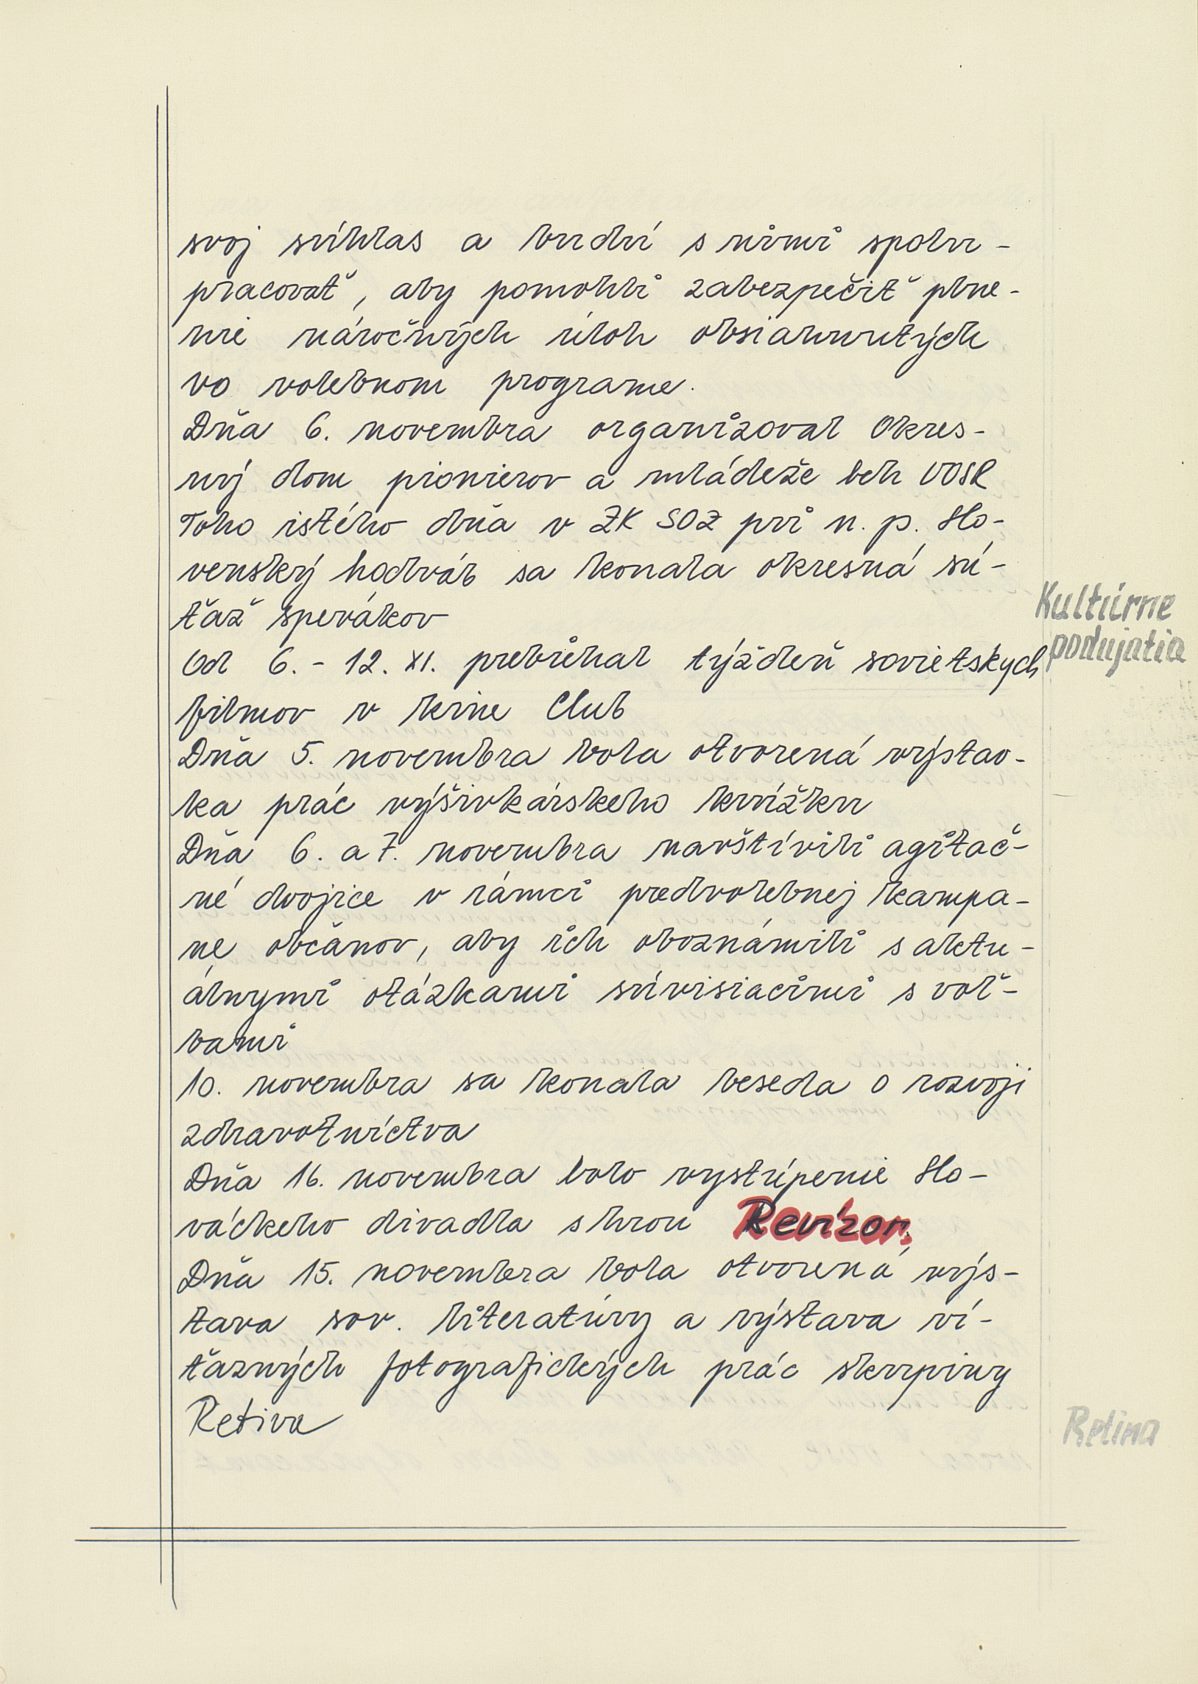 svoj súhlas a budú s nimi spolu-
pracovať, aby pomohli zabezpečiť plne-
nie náročných úloh obsiahnutých
vo volebnom programe.
Dňa 6. novembra organizoval Okres-
ný dom pionierov a mládeže beh VOSR
Toho istého dňa v ZK SOZ pri n. p. Slo-
venský hodváb sa konala okresná sú-
ťaž spevákov
Kultúrne
podujatia
Od 6. - 12. XI. prebiehal týždeň sovietskych
filmov v kine Club
Dňa 5. novembra bola otvorená výstav-
ka prác výšivkárskeho krúžku
Dňa 6. a 7. novembra navštívili agitač-
né dvojice v rámci predvolebnej kampa-
ne občanov, aby ich oboznámili s aktu-
álnymi otázkami súvisiacimi s voľ-
bami
10. novembra sa konala beseda o rozvoji
zdravotníctva
Dňa 16. novembra bolo vystúpenie Slo-
váckeho divadla s hrou Revízor.
Dňa 15. novembra bola otvorená výs-
tava sov. literatúry a výstava ví-
ťazných fotografických prác skupiny
Retina
Retina